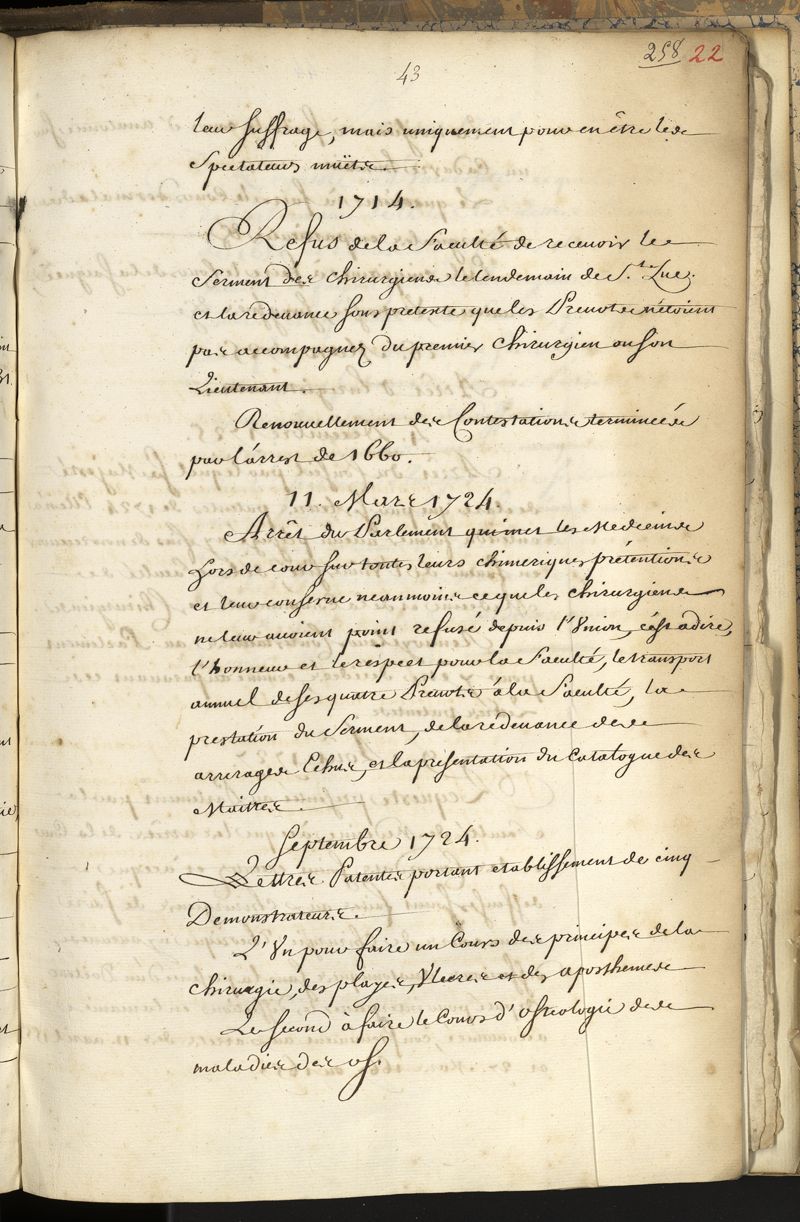 258 22
43
leur suffrage, mais uniquement pour en être les
Spectateurs müets.
1714.
Refus de la Faculté de recevoir le
Serment des chirurgiens le lendemain de S.t Luc,
et la rédevance sous pretexte que les Prevots n'etoient
pas accompagnez du premier chirurgien ou son
Lieutenant.
Renouvellement des Contestations terminées
par l'árrest de 1660.
11. Mars 1724.
Arrêt du Parlement qui met les Medecins
hors de cour sur toutes leurs chimeriques prétentions
et leur conserve neanmoins ce que les chirurgiens
ne leur avoient point refusé depuis l'Union, c'est adire,
l'honneur et le respect pour la Faculté, le transport
annuel de ses quatre Prevots à la Faculté, la
prestation du Serment, de la rédevance des
arrerages Echus, et la présentation du Catalogue des
Maitres.
Septembre 1724.
Lettres Patentes portant etablissement de cinq
Demonstrateurs.
L'Un pour faire un Cours des principes de la
chirurgie, des playes, Ulceres et des aposthemes
Le second à faire le Cours d'osteologie des
maladies des os.